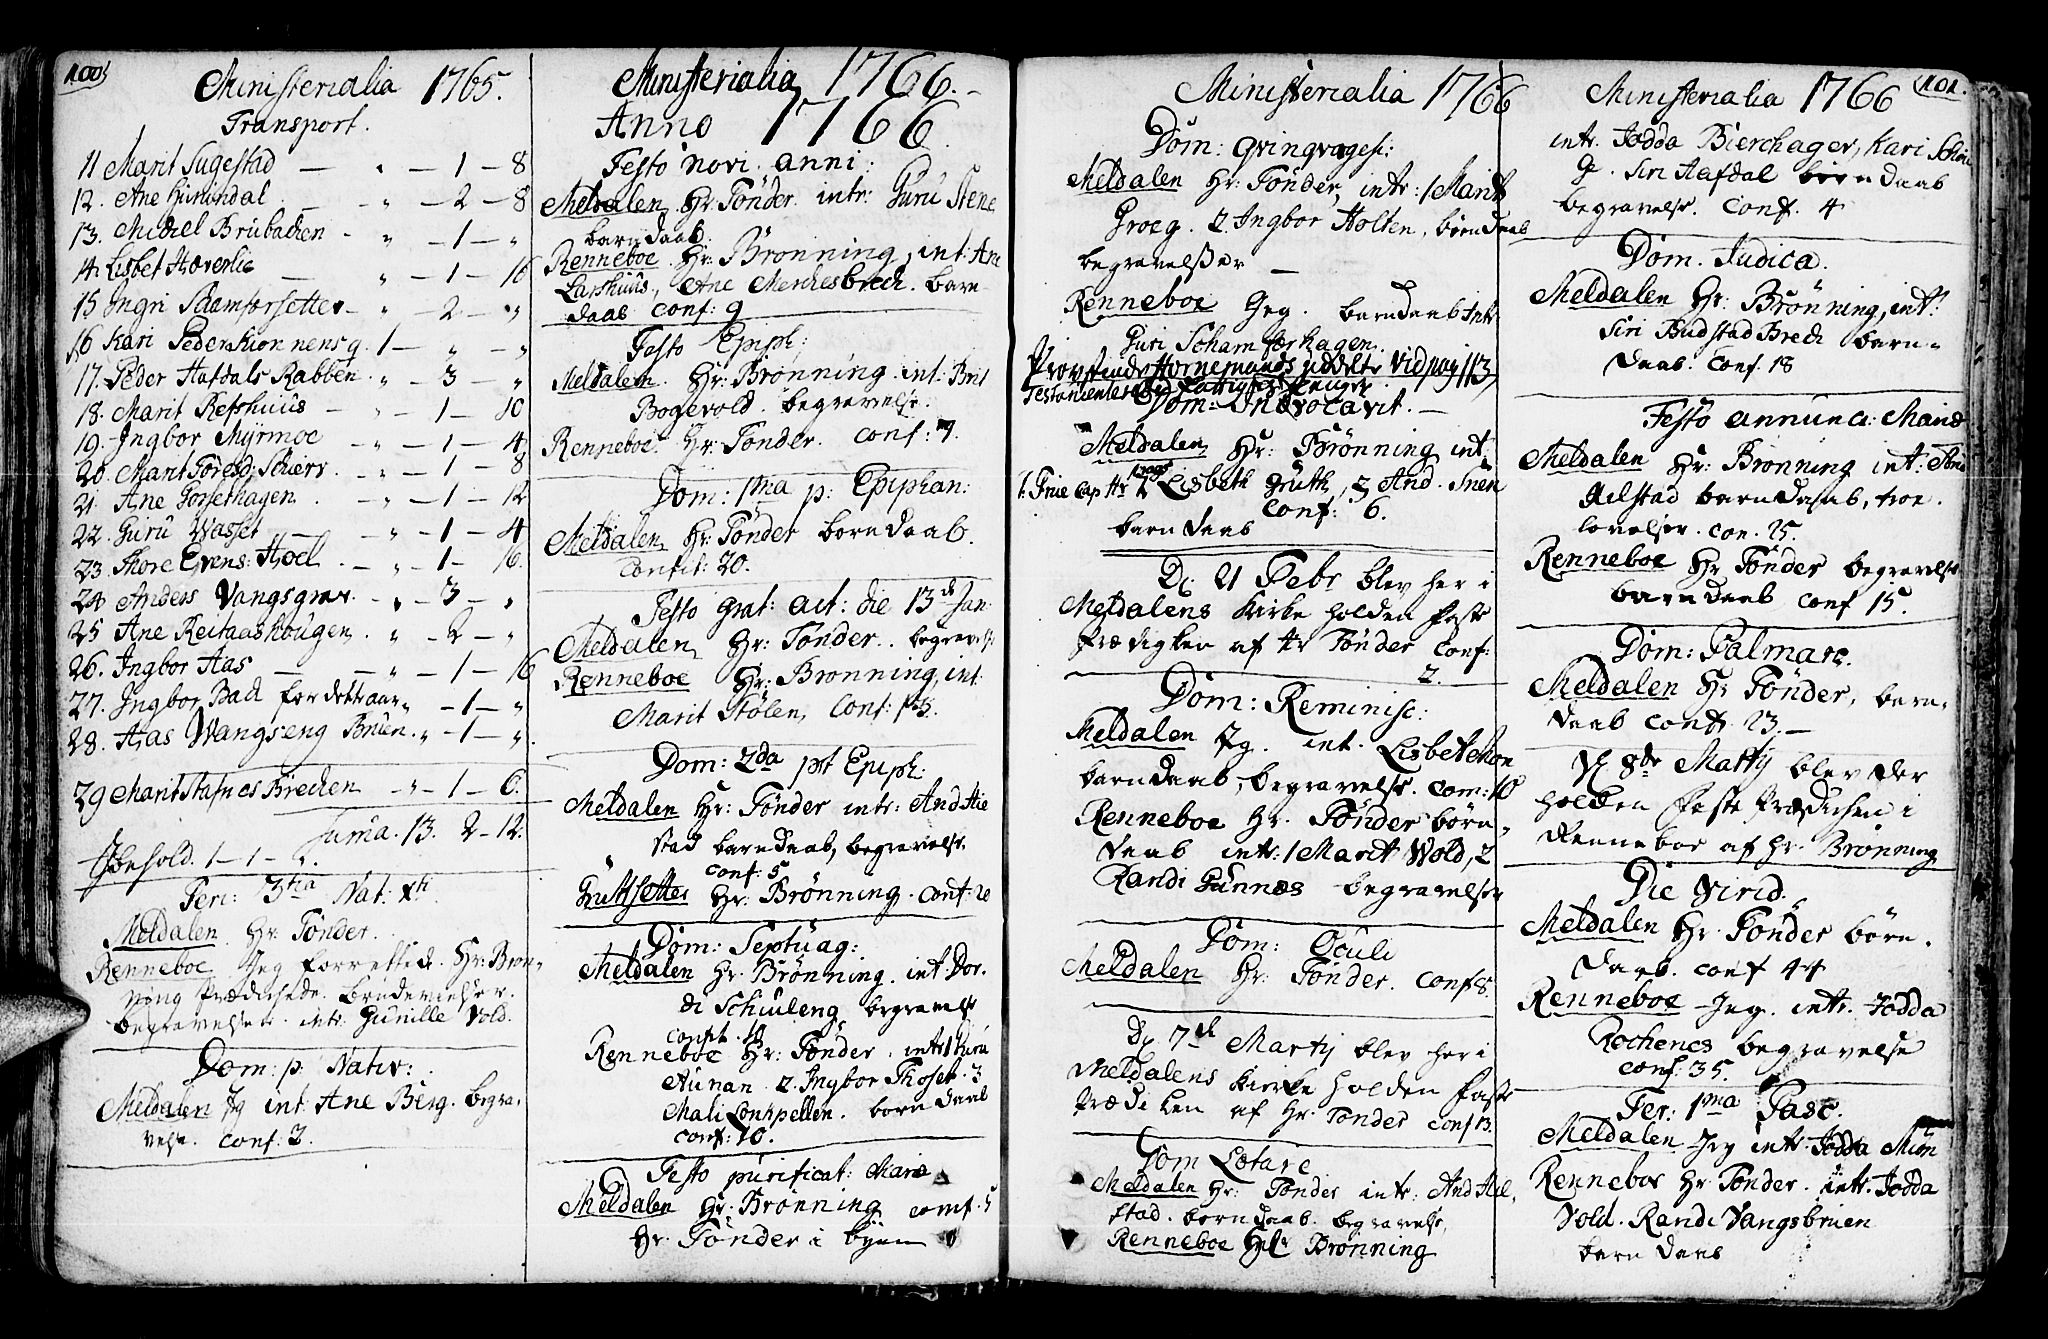 100
Ministerialia 1765.
Transport.
11 Marit Sugestad — " — 1 — 8
12. Ane Hiurundal. — " — 2 — 8
13. Michel Brubachen — " — 1 — "
14. Lisbet Hoverlie — " — 1 — 16
15 Ingri Skamforsetter — " — 2 — "
16 Kari Peders Kronnensg. 1 — " — "
17. Peder Hafdals Rabben. " — 3 — "
18. Marit Refshuus — " — 1 — 10
19. Ingbor Myrmoe — " — 1 — 4
20. Marit Toresd: Schierv. — " — 1 — 8
21. Ane Gorsethagen. — " — 1 — 12
22. Guru Wasset — " — 1 — 4
23. Thore Evens: Hoel. — " — 1 — 16.
24 Anders Vangsgrav. — " — 3 — "
25 Ane Reitaashougen. " — 2 — "
26. Ingbor Aas — " — 1 — 16
27. Ingbor Bach for dette aar " — 1 — "
28. Aas Wangseng Bruen. " — 1 — ".
29 Marit Stafnes Brechen — " — 1 — 6.
Suma. 13. 2 — 12.
Behold. 1 — 1 — 2.
Feri: 3tia Nat: Xti
Meldalen Hr: Tönder.
Renneboe Jeg forrettede. Hr: Brön-
ning Prædichede. Brudevielser.
begravelser. intr: Gunille Vold.
Dom: p: Nativ:
Meldalen Jg int: Ane Berg. begra-
velse. Conf. 2.
Ministerialia 1766.
Anno 1766.
Festo novi anni:
Meldalen Hr: Tönder. intr: Guru Stene
barndaab.
Renneboe. Hr: Brönning, int: Ane
Larshuus, Ane Merchesbrech. Barn-
daab Conf: 9
Festo Epiph:
Meldalen. Hr: Brönning. int: Brit
Bogevold. begravelse.
Renneboe. Hr: Tönder. Conf: 7.
Dom: 1ma p: Epiphan:
Meldalen Hr: Tönder borndaab.
Confit: 20.
Festo grat: act: die 13de Jan:
Meldalen Hr: Tönder. begravelse
Renneboe Hr: Brönning, int:
Marit Stölen, Conf: 15.
Dom: 2da pt Epiph:
Meldalen Hr: Tönder intr: And Hil
stad barndaab, begravelse.
Conf: 5
Gruttsetter Hr: Brönning. Conf: 20
Dom: Septuag:
Meldalen Hr. Brönning. int Dor.
di Schiuleng begravelse
Renneboe Hr: Tönder. intr: 1 Guru
Aunan. 2. Ingbor Thoset. 3
Mali Lonkpellen. borndaab
Conf: 10.
Festo purificat: Mariæ
Meldalen Hr: Brönning conf. 5
Hr. Tönder i byen
Ministerialia 1766
Dom: Qvinqvagesi:
Meldalen Hr: Tönder, intr: 1 Marit
Groeg. 2. Ingbor Holten, börndaab
begravelser —
Renneboe Jeg. barndaab Intr
Guri Schamferhagen.
Provstinde Hornemands uddelte vid pag 113
Dom: Invocavit. —
Meldalen Hr: Brönning int:
Lisbeth Gruth, 2 And. Snen
Conf: 6.
barndaab
D. 21 Febr blev her i
Meldalens Kirke holden faste
Prædichen af Hr Tönder Conf:
2.
Dom: Reminisc:
Meldalen Jg. int. Lisbet Ekon
barndaab, begravelse. com: 10
Renneboe Hr. Tönder börn-
daab intr: 1 Marit Wold, 2
Randi Gunnæs begravelse
Dom: Oculi
Meldalen Hr: Tönder. Conf 8.
D. 7de Martij blev her i
Meldalens Kirke holden faste
Prædiken af Hr: Tönder Conf 13.
Dom Lætare
Meldalen Hr: Tönder intr: And Hil-
stad. borndaab. begravelse,
Renneboe Hr Brönning
Ministerialia 1766 101.
intr. Jodda Bierchager, Kari
Siri Hafdal barndaab
begravelse. Conf. 4
Dom. Judica.
Meldalen Hr: Brönning, int:
Siri Budstad Brech barn-
daab. Conf. 18
Festo annunc: Mariæ
Meldalen Hr: Brönning int: And
Hilstad barndaab, troe-
lovelser. con. 25.
Renneboe Hr Tönder begravelse
barndaab Conf 15.
Dom: Palmare.
Meldalen Hr Tönder, barn-
daab Conf. 23. —
D. 8de Martij blev der
holden faste Prædichen i
Renneboe af Hr. Brönning
Die Virid.
Meldalen Hr. Tönder börn-
daab. Conf 44
Renneboe Jeg. intr. Jodda
Rochenes begravelse
Conf: 35.
Fer: 1ma Pasc.
Meldalen Jeg intr. Jodda Mun
Renneboe Hr Tönder. intr. Jodda
Vold. Randi Vangsbruen
barndaab